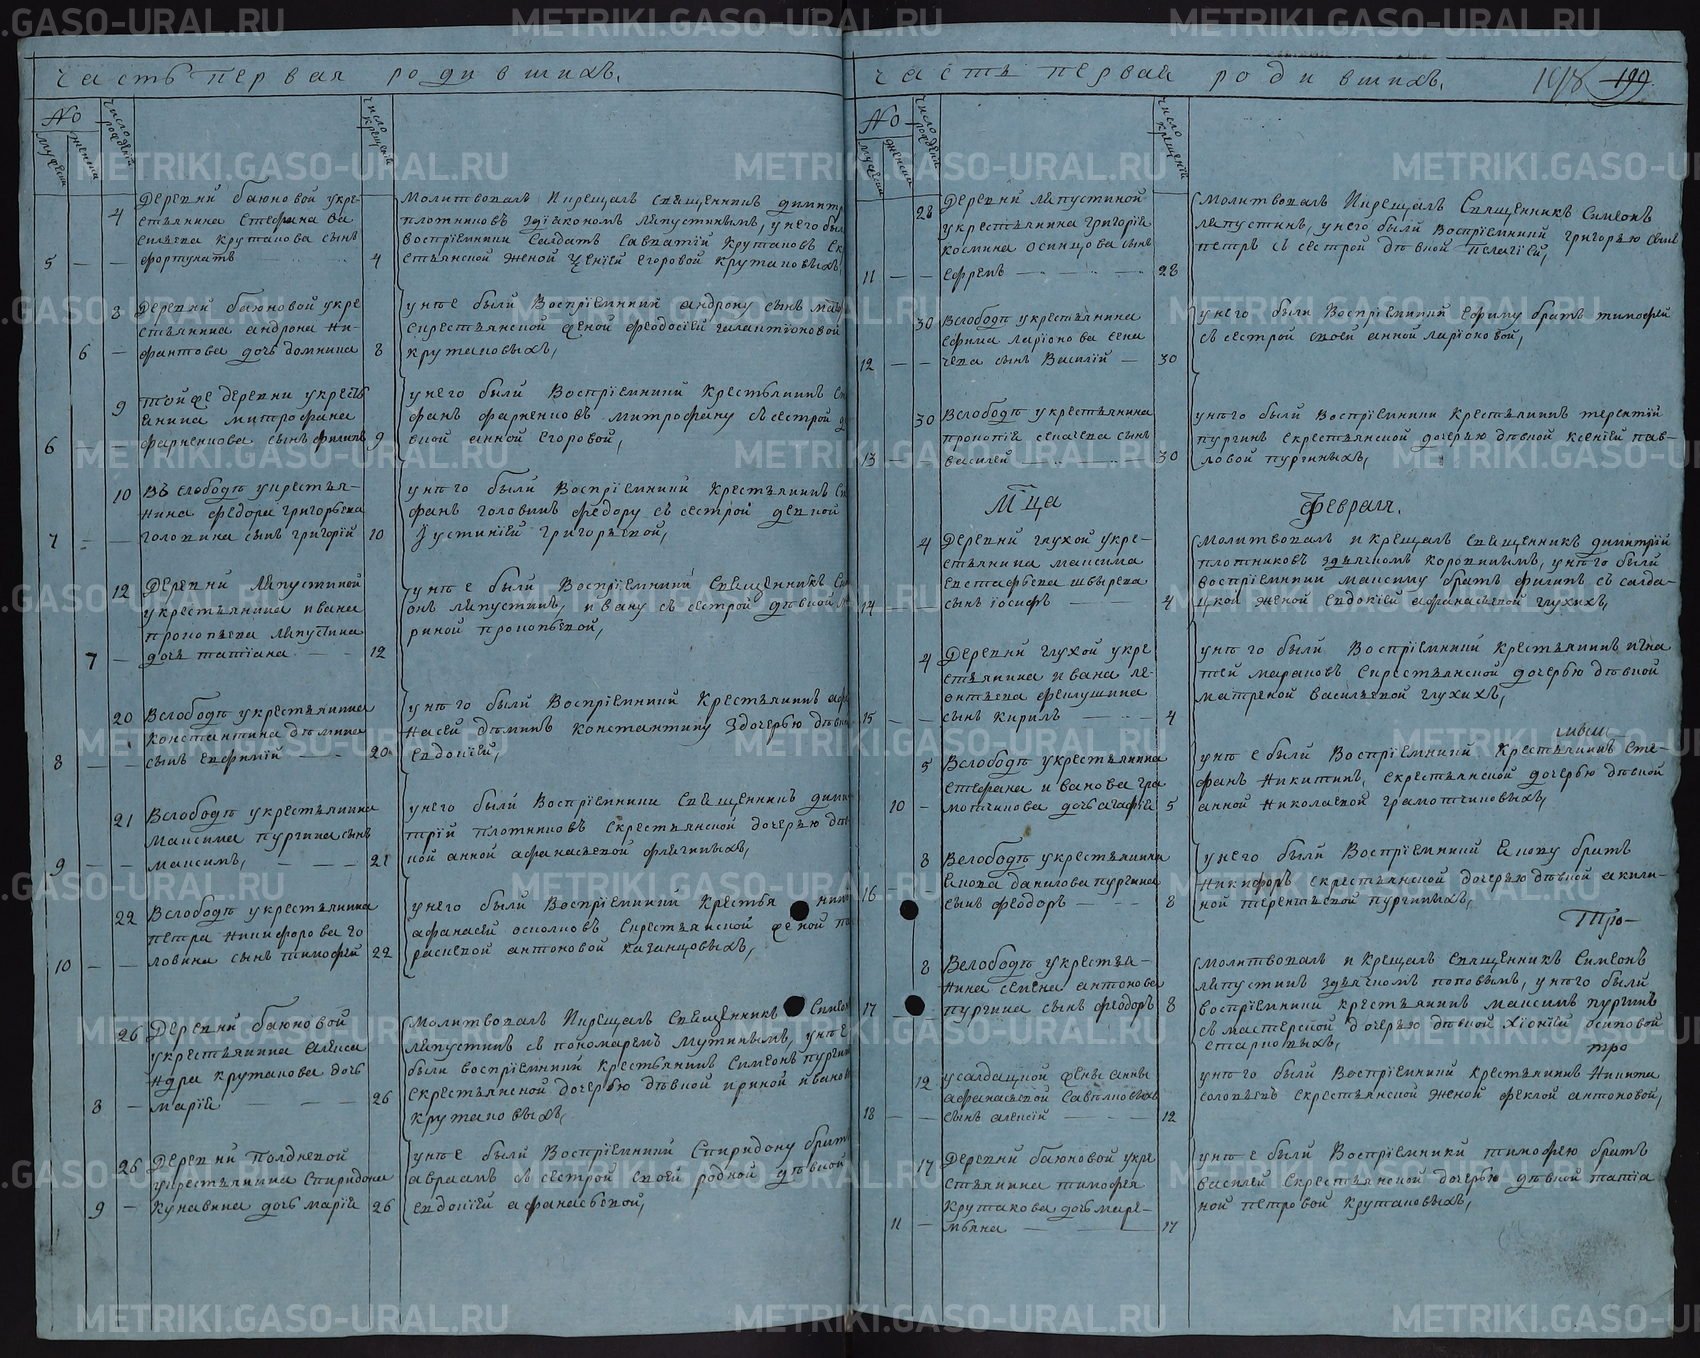 часть первая родившихъ,
№
мужеска
женска
число рожденій
число крещенія
4
Деревни баюновой укре-
стьянина Стефана Ва
сильева крутакова сынъ
5 — —
фортунатъ
4
Молитвовалъ Икрещалъ Священникъ димитр
плотниковъ здіакономъ Ляпустинымъ, унего был
воспріемники Солдатъ Савватій Крутаковъ Ск
стьянской женой егоровой крутаковыхъ,
8
Деревни баюновой укре
стьянина андрона Ни-
6 —
фантова дочь домника
8
унѣе были Воспріемники андрону сынъ
Скрестьянской женой феодосіей галактіоновой
крутаковыхъ,
9
тойже деревни укрестъ
янина митрофана
6 — —
фарненкова сынъ филипъ
9
унего были Воспріемники Крестьянинъ Сте
фанъ фарненковъ митрофану съ сестрой д
вкой анной Егоровой,
10
Въ слободѣ укрестья-
нина федора григорьева
7 — —
головина сынъ григорій
10
унѣго были Воспріемники Крестьянинъ Сте
фанъ головинъ федору съ сестрой девкой
Іустиніей Григорьевой,
12
Деревни Ляпустиной
укрестьянина ивана
прокопьева ляпустина
7 —
дочь татіана
12
унѣе были Воспріемники Священникъ Сим
онъ ляпустинъ, ивану съ сестрой дѣвкой
риной прокопьевой,
20
Вслободѣ укрестьянина
константина дѣмина
8 — —
сынъ евфимій
20
унѣго были Воспріемники Крестьянинъ афа
насей дѣминъ константину здочерью дѣвк
евдокіей,
21
Вслободѣ укрестьянина
Максима пургина сынъ
9 — —
максимъ,
21
унего были Воспріемники Священникъ дими
трій плотниковъ скрестьянской дочерью дѣв
кой анной афанасьевой флягиныхъ,
22
Вслободѣ укрестьянина
петра никифорова го
10 — —
ловина сынъ тимофей
22
унего были Воспріемники Крестья нинъ
афанасей осколковъ Скрестьянской женой па
расковой антоновой казанцовыхъ,
26
Деревни баюновой
укрестьянина алекса
ндра крутакова дочь
8 —
марія
26
Молитвовалъ Икрещалъ Священникъ Симеонъ
ляпустинъ съ пономаремъ Мутинымъ, унѣе
были воспріемники крестьянинъ Симеонъ пургин
скрестьянской дочерью дѣвкой ириной иванов
крутаковыхъ,
26
Деревни Полдневой
укрестьянина Спиридона
9 —
кунавина дочь марія
26
унѣе были Воспріемники Спиридону братъ
авраамъ съ сестрой своей родной дѣвкой
евдокіей афанасьевой,
часть первая родившихъ.
199
№
мужеска
женска
число рожденій
число крещеній
28
Деревни ляпустиной
укрестьянина григорія
космина осинцова сынъ
11 — —
ефремъ
28
Молитвовалъ Икрещалъ Священникъ Симеонъ
ляпустинъ, унего были Воспріемники григорью сынъ
петръ съ сестрой дѣвкой пелагіей,
30
Вслободѣ укрестьянина
ефима ларіонова сена
12 — —
чева сынъ Василій
30
унего были Воспріемники Ефиму братъ тимофей
съ сестрой своей анной ларіоновой,
30
Вслободѣ укрестьянина
прокопія сеначева сынъ
13 —
василей
30
унѣго были Воспріемники крестьянинъ терентій
пургинъ скрестьянской дочерью дѣвкой ксеніей пав-
ловой пургиныхъ,
Мца
февраля.
4
Деревни глухой укре-
стьянина максима
евстафьева швырева
14 — —
сынъ іосифъ
4
Молитвовалъ и крещалъ Священникъ димитрій
плотниковъ здьячкомъ коровинымъ, унѣго были
воспріемники максиму братъ филипъ съ салда-
цкой женой евдокіей афанасьевой глухихъ,
4
Деревни глухой укре
стьянина ивана ле-
онтьева феклушина
15 — —
сынъ кирилъ
4
унѣго были Воспріемники Крестьянинъ игна
тей марановъ Скрестьянской дочерью дѣвкой
матреной васильевой глухихъ,
5
Вслободѣ укрестьянина
стефана иванова гра
10 —
мотчикова дочь агафія
5
унѣе были Воспріемники Крестьянинъ Сте-
фанъ никитинъ, скрестьянской дочерью дѣвкой
анной николаевой грамотчиковыхъ,
8
Вслободѣ укрестьянина
Енова данилова пургина
16 —
сынъ феодоръ
8
унего были Воспріемники Енову братъ
никифоръ скрестьянской дочерью дѣвкой акили-
ной терентьевой пургиныхъ,
8
Вслободѣ укрестья-
нина семена антонова
17 —
пургина сынъ феодоръ
8
Молитвовалъ и крещалъ Священникъ Симеонъ
ляпустинъ здьячкомъ поповымъ, унѣго были
воспріемники крестьянинъ максимъ пургинъ
съ мастерской дочерью дѣвкой хіоніей осиповой
старковыхъ,
12
усалдацкой жены анны
афанасьевой
18 — —
сынъ алексій
12
унѣго были Воспріемники крестьянинъ никита
соловьевъ скрестьянской женой феклой антоновой,
17
Деревни баюновой укре
стьянина тимофея
крутакова дочь маре-
11 —
мьяна
17
унѣе были Воспріемники тимофею братъ
василей Скрестьянской дочерью дѣвкой татіа
ной петровой крутаковыхъ,
METRIKI.GASO-URAL.RU